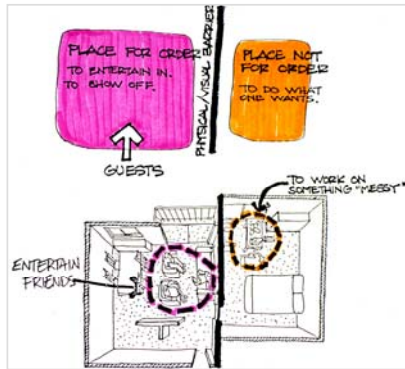 PLACE FOR ORDER
TO ENTERTAIN IN.
TO SHOW OFF.
GUESTS
PHYSICAL/VISUAL BARRIER
PLACE NOT
FOR ORDER
TO DO WHAT
ONE WANTS.
TO WORK ON
SOMETHING "MESSY"
ENTERTAIN
FRIENDS